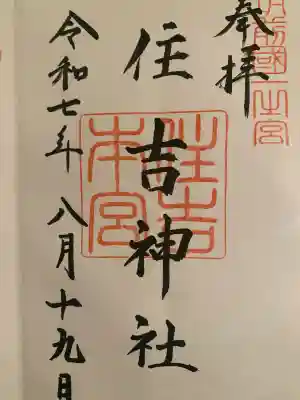 前國一之宮
奉拝
住吉神社
住吉
本宮
令和七年八月十九日